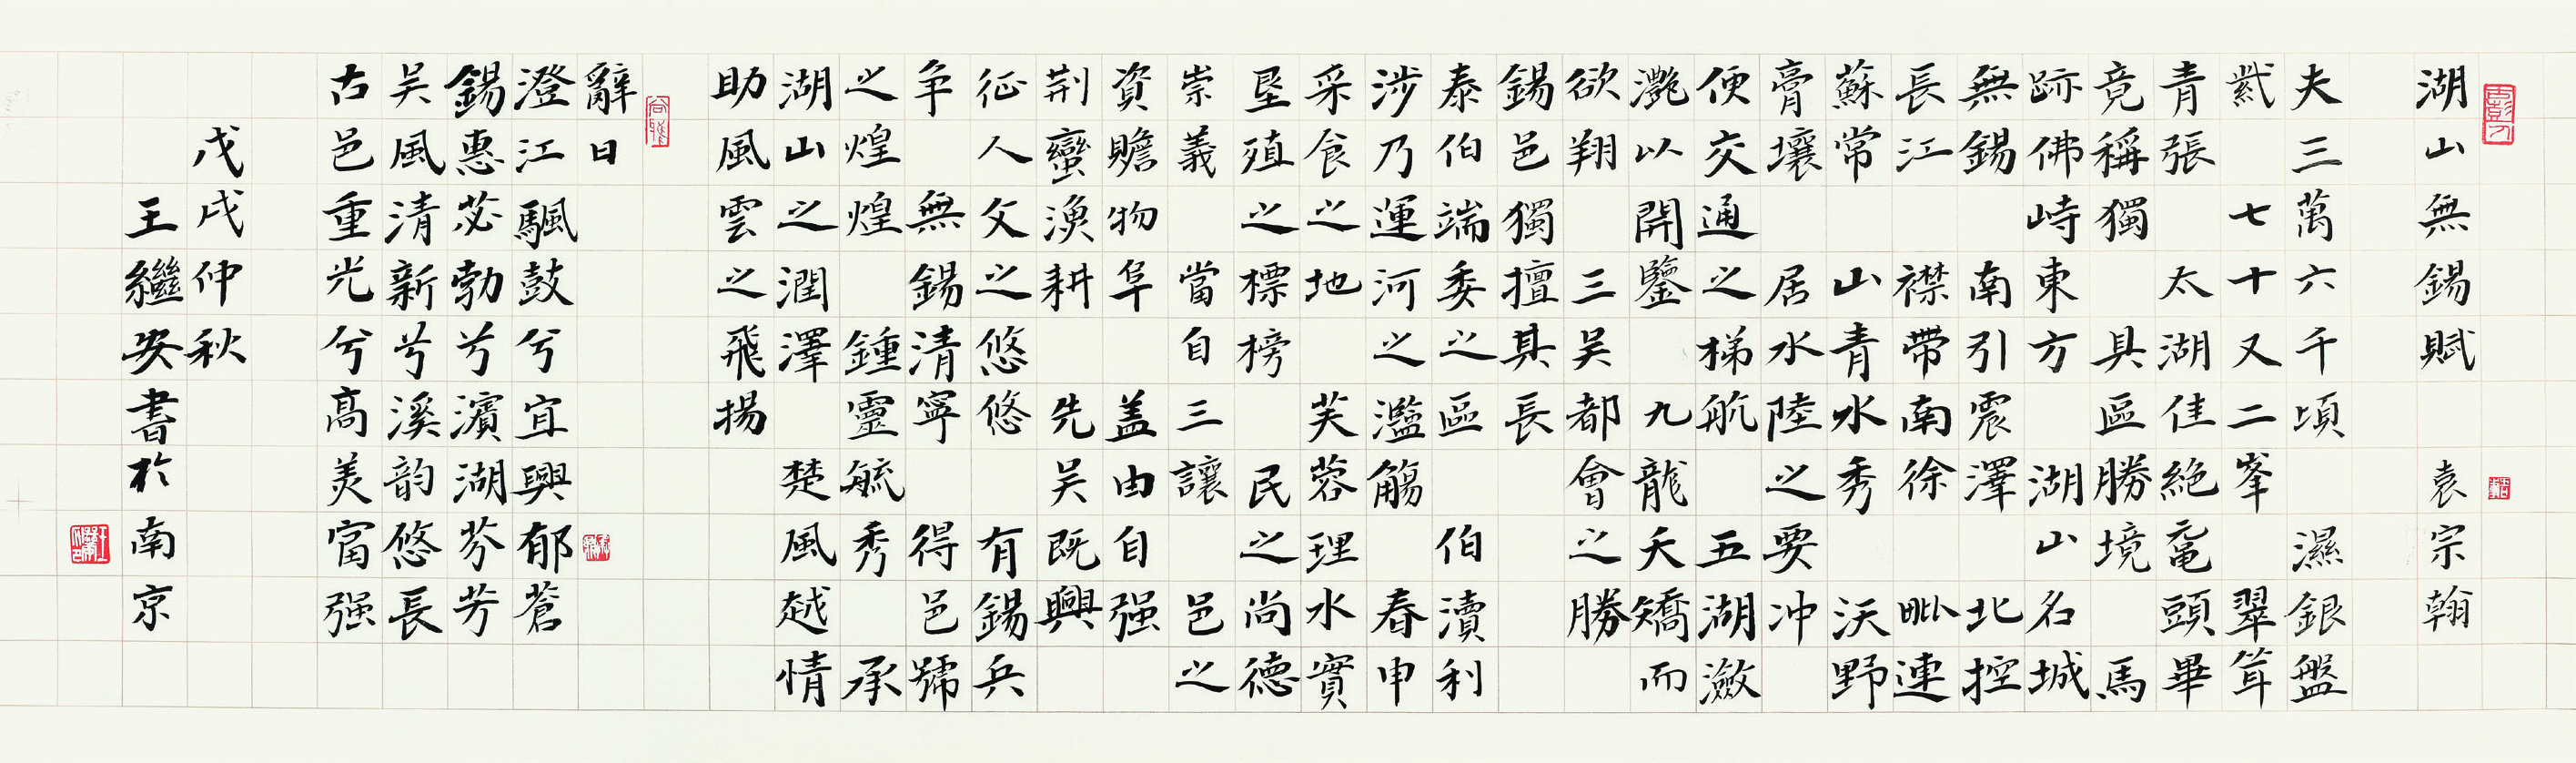 湖山無錫賦 袁宗翰
夫三萬六千頃 濕銀盤
七十又二峯 翠茸
青張 太湖佳絶黿頭畢
竟稱獨 具區勝境 馬
跡佛峙東方 湖山名城
無錫南引震澤 北控
長江襟帶南徐 毗連
蘇常 山青水秀 沃野
膏壤 居水陸之要冲
便交通之梯航 五湖瀲
灔以開鑒 九龍夭矯而
欲翔 三吳都會之勝
錫邑獨擅其長
泰伯端委之區 伯瀆利
涉乃運河之濫觴 春申
采食之地 芙蓉理水實
垦殖之標榜 民之尚德
崇義 當自三讓 邑之
資贍物阜 盖由自强
荆蠻漁耕 先吳既興
征人文之悠悠 有錫兵
争 無錫清寧 得邑號
之煌煌 鍾靈毓秀 承
湖山之潤澤 楚風越情
助風雲之飛揚
辭曰
澄江颿鼓兮宜興郁蒼
錫惠苾勃兮濱湖芬芳
吳風清新兮溪韵悠長
古邑重光兮高美富强
戊戌仲秋
王繼安書於南京